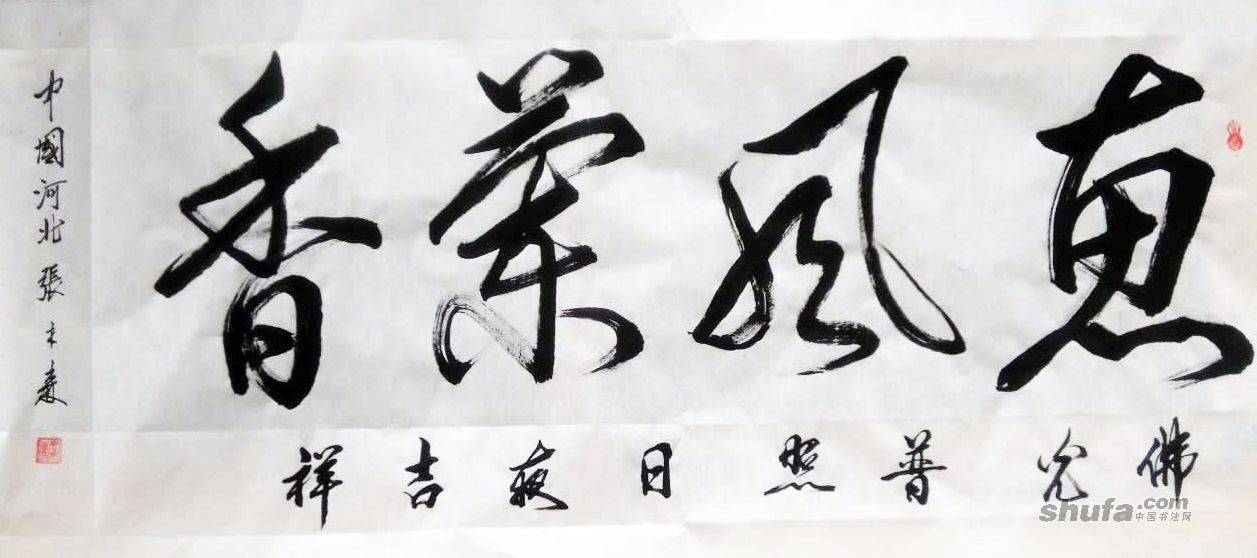 惠風蘭香
佛光普照日夜吉祥
中國河北張
shufa.com
中国书法网